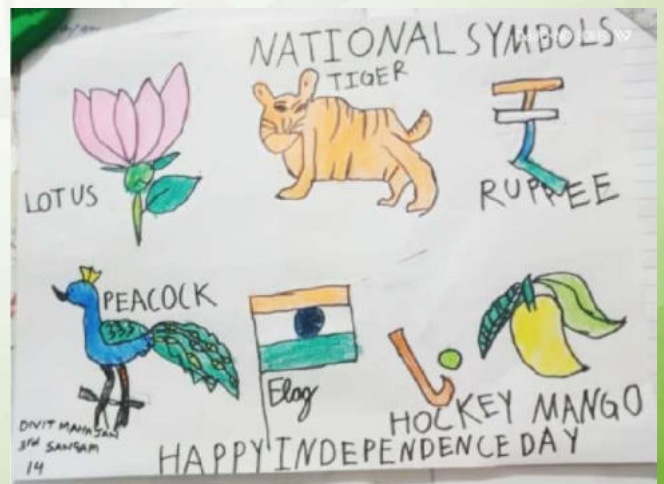 NATIONAL SYMBOLS
TIGER
LOTUS
RUPPEE
PEACOCK
Flag
HOCKEY MANGO
DIVIT MAHAJAN
3rd SANGAM
14
HAPPY INDEPENDENCE DAY